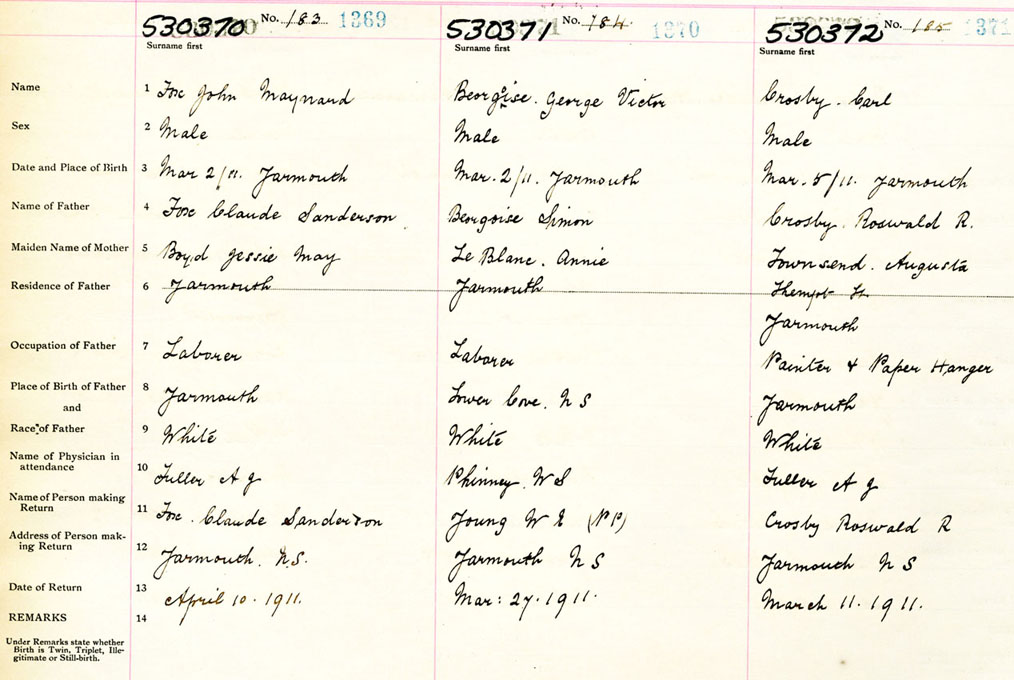 530370 No. 183 1369
530371 No. 184 1370
530372 No. 185 1371
Surname first Surname first Surname first
Name 1 Fox John Maynard Beorgoise. George Victor Crosby. Carl
Sex 2 Male Male Male
Date and Place of Birth 3 Mar 2/11. Yarmouth Mar. 2/11. Yarmouth Mar. 5/11. Yarmouth
Name of Father 4 Fox Claude Sanderson Beorgoise Simon Crosby. Roswald R.
Maiden Name of Mother 5 Boyd Jessie May Le Blanc. Annie Townsend. Augusta
Residence of Father 6 Yarmouth Yarmouth St.
Yarmouth
Occupation of Father 7 Laborer Laborer Painter & Paper Hanger
Place of Birth of Father 8 Yarmouth Lower Cove. N S Yarmouth
and
Race of Father 9 White White White
Name of Physician in
attendance 10 Fuller A G Phinney. W S Fuller A G
Name of Person making
Return 11 Fox. Claude Sanderson Young W E (PP) Crosby Roswald R
Address of Person mak-
ing Return 12 Yarmouth. N.S. Yarmouth N S Yarmouth N S
Date of Return 13 April 10. 1911. Mar: 27. 1911. March 11. 1911.
REMARKS 14
Under Remarks state whether
Birth is Twin, Triplet, Ille-
gitimate or Still-birth.